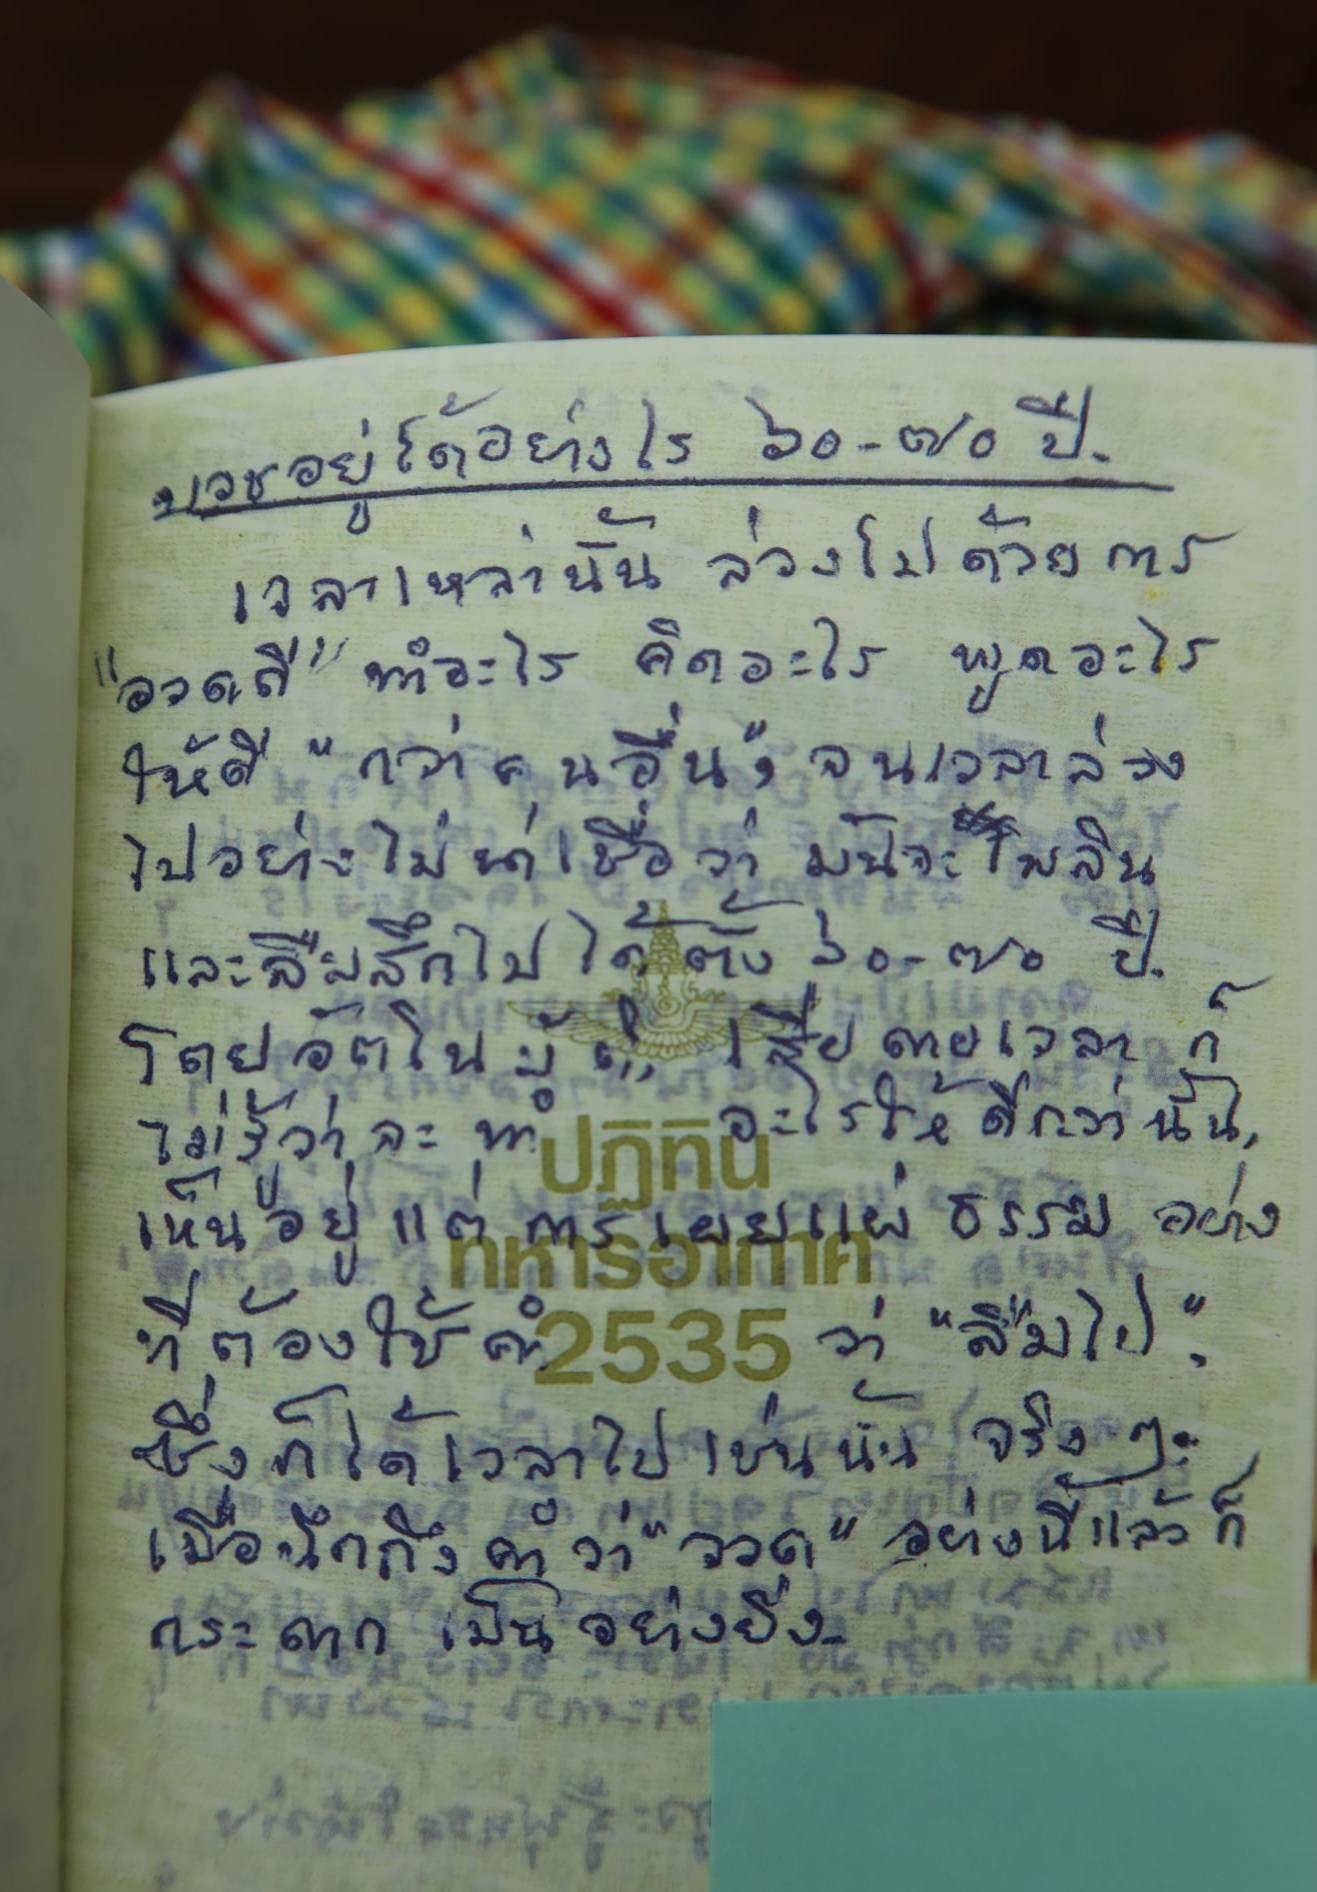 บวชอยู่ได้อย่างไร ๖๐-๗๐ ปี.
เวลาเหล่านั้น ล่วงไปด้วยการ
"อวดดี" ทำอะไร คิดอะไร พูดอะไร
ให้ดี "กว่าคนอื่น" จนเวลาล่วง
ไปอย่างไม่น่าเชื่อว่า มันจะเพลิน
และลืมสึกไปได้ตั้ง ๖๐-๗๐ ปี.
โดยอัตโนมัติ, เสียดายเวลา ก็
ไม่รู้ว่าจะ ทำ อะไรให้ดีกว่านั้น,
เห็นอยู่ แต่ การเผยแผ่ ธรรม อย่าง
ที่ต้องใช้คำ ว่า "ลืมไป".
ซึ่งก็ได้เวลาไปเช่นนั้น จริงๆ.
เมื่อนึกถึงคำว่า "อวด" อย่างนี้แล้วก็
กระดาก เป็นอย่างยิ่ง.
ปฏิทิน
ทหารอากาศ
2535